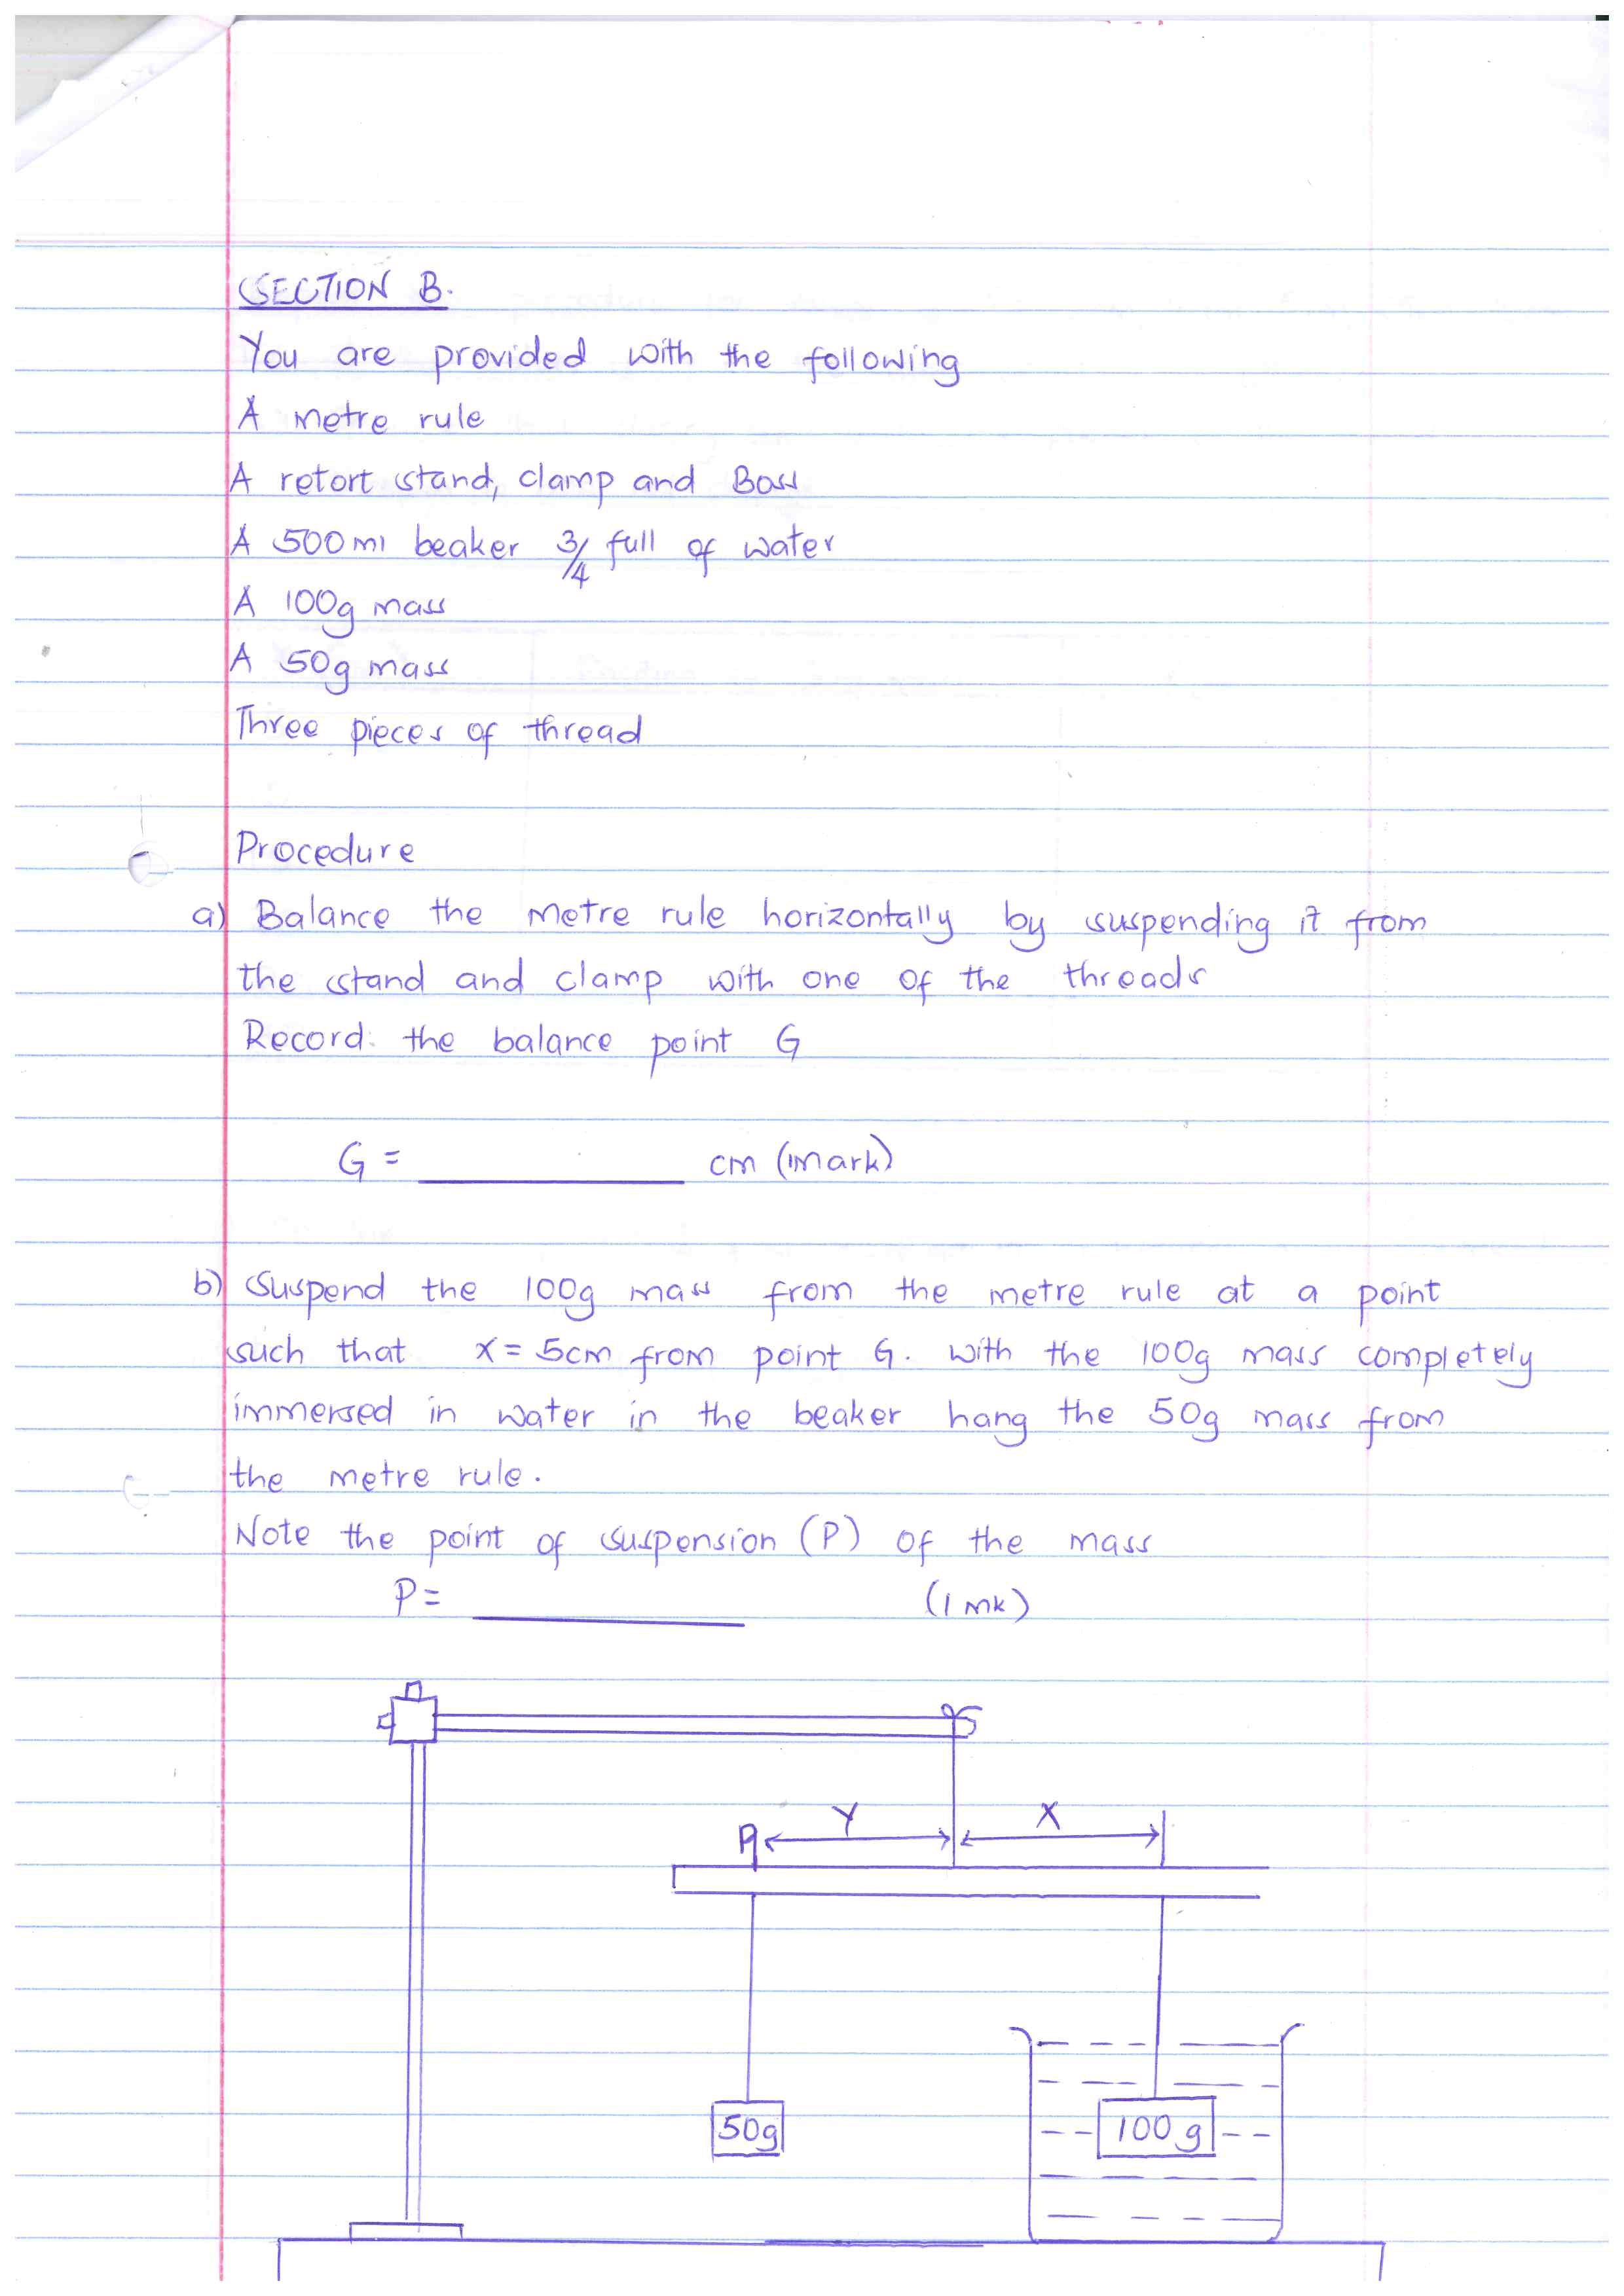 SECTION B.
You are provided with the following
A metre rule
A retort stand, clamp and Boss
A 500ml beaker 3/4 full of water
A 100g mass
A 50g mass
Three pieces of thread
Procedure
a) Balance the metre rule horizontally by suspending it from
the stand and clamp with one of the threads
Record the balance point G
G = ________ cm (1mark)
b) Suspend the 100g mass from the metre rule at a point
such that x = 5cm from point G. with the 100g mass completely
immersed in water in the beaker hang the 50g mass from
the metre rule.
Note the point of suspension (P) of the mass
P = ________ (1 mk)
P Y X
50g 100g